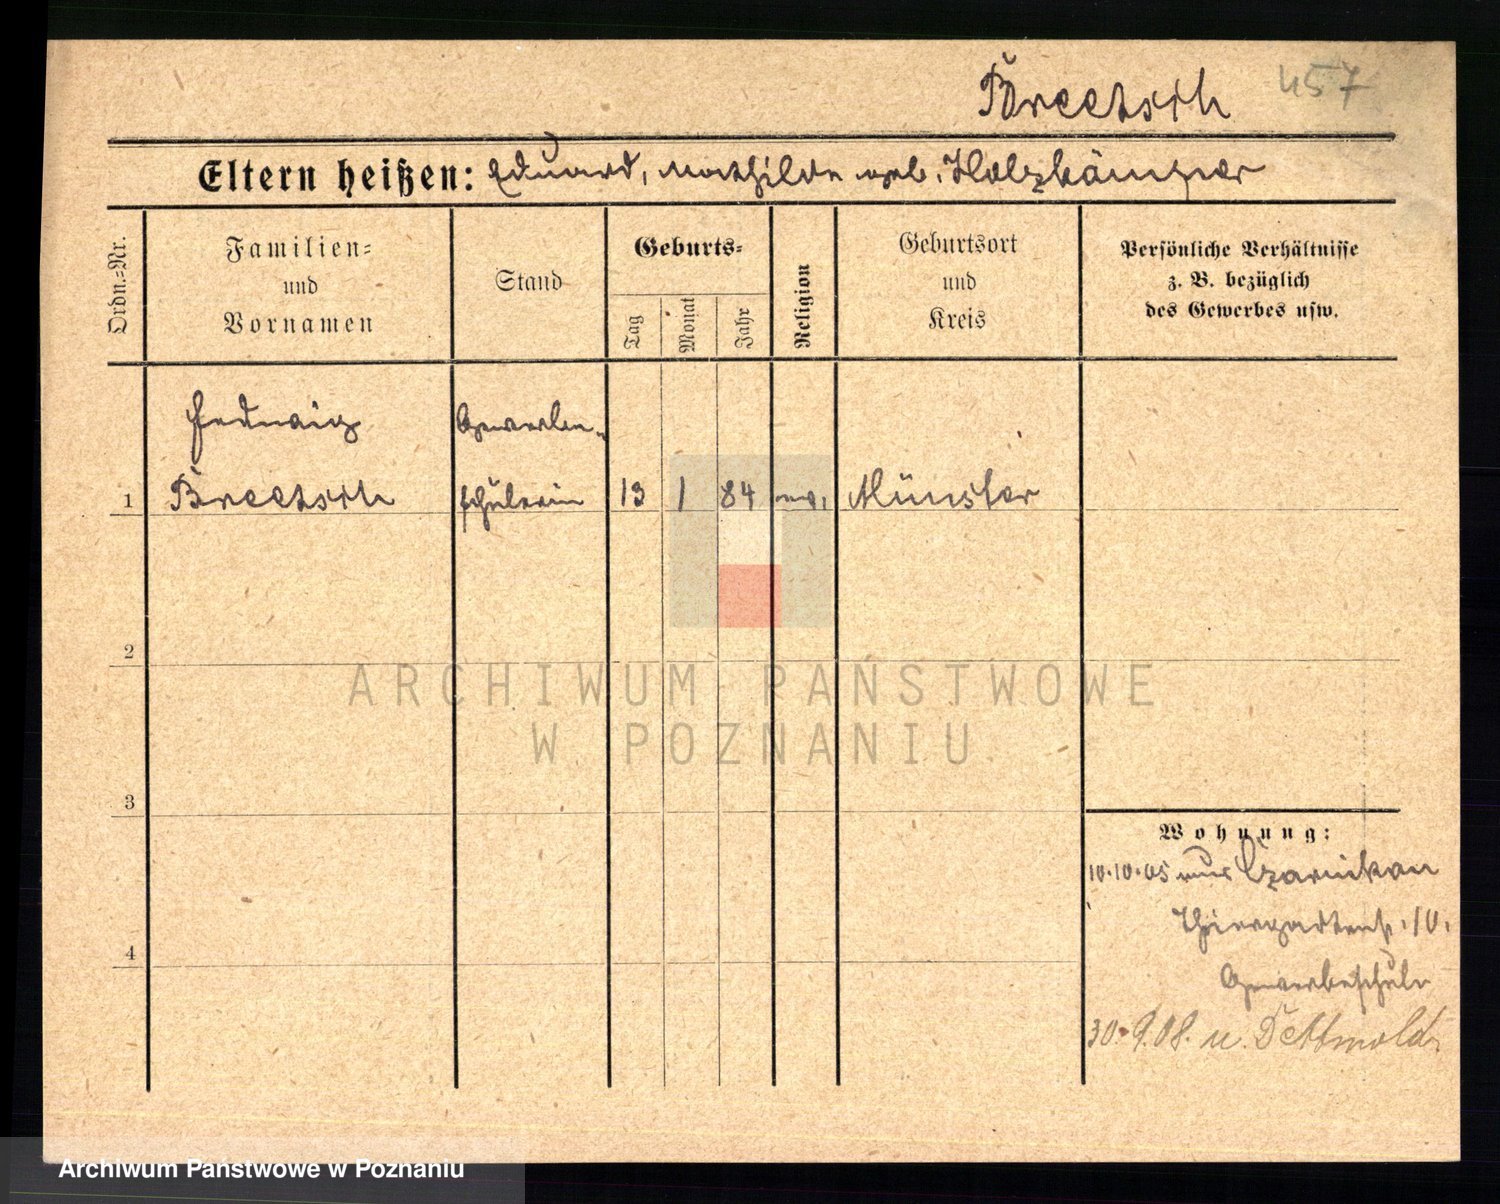 Breetsch 457
Eltern heißen: Eduard, Mathilde geb. Holzkämper
Ordn.=Nr.
Familien=
und
Vornamen
Stand
Geburts=
Tag
Monat
Jahr
Religion
Geburtsort
und
Kreis
Persönliche Verhältnisse
z. B. bezüglich
des Gewerbes usw.
Hedwig Gewerbe-
1 Breetsch schülerin 13 1 84 ev. Münster
2
ARCHIWUM PAŃSTWOWE
W POZNANIU
3
Wohnung:
10.10.05 aus Czarnikau
Thiergartenstr. 10.
Gewerbeschule
4
30.9.08. n. Dettmold
Archiwum Państwowe w Poznaniu